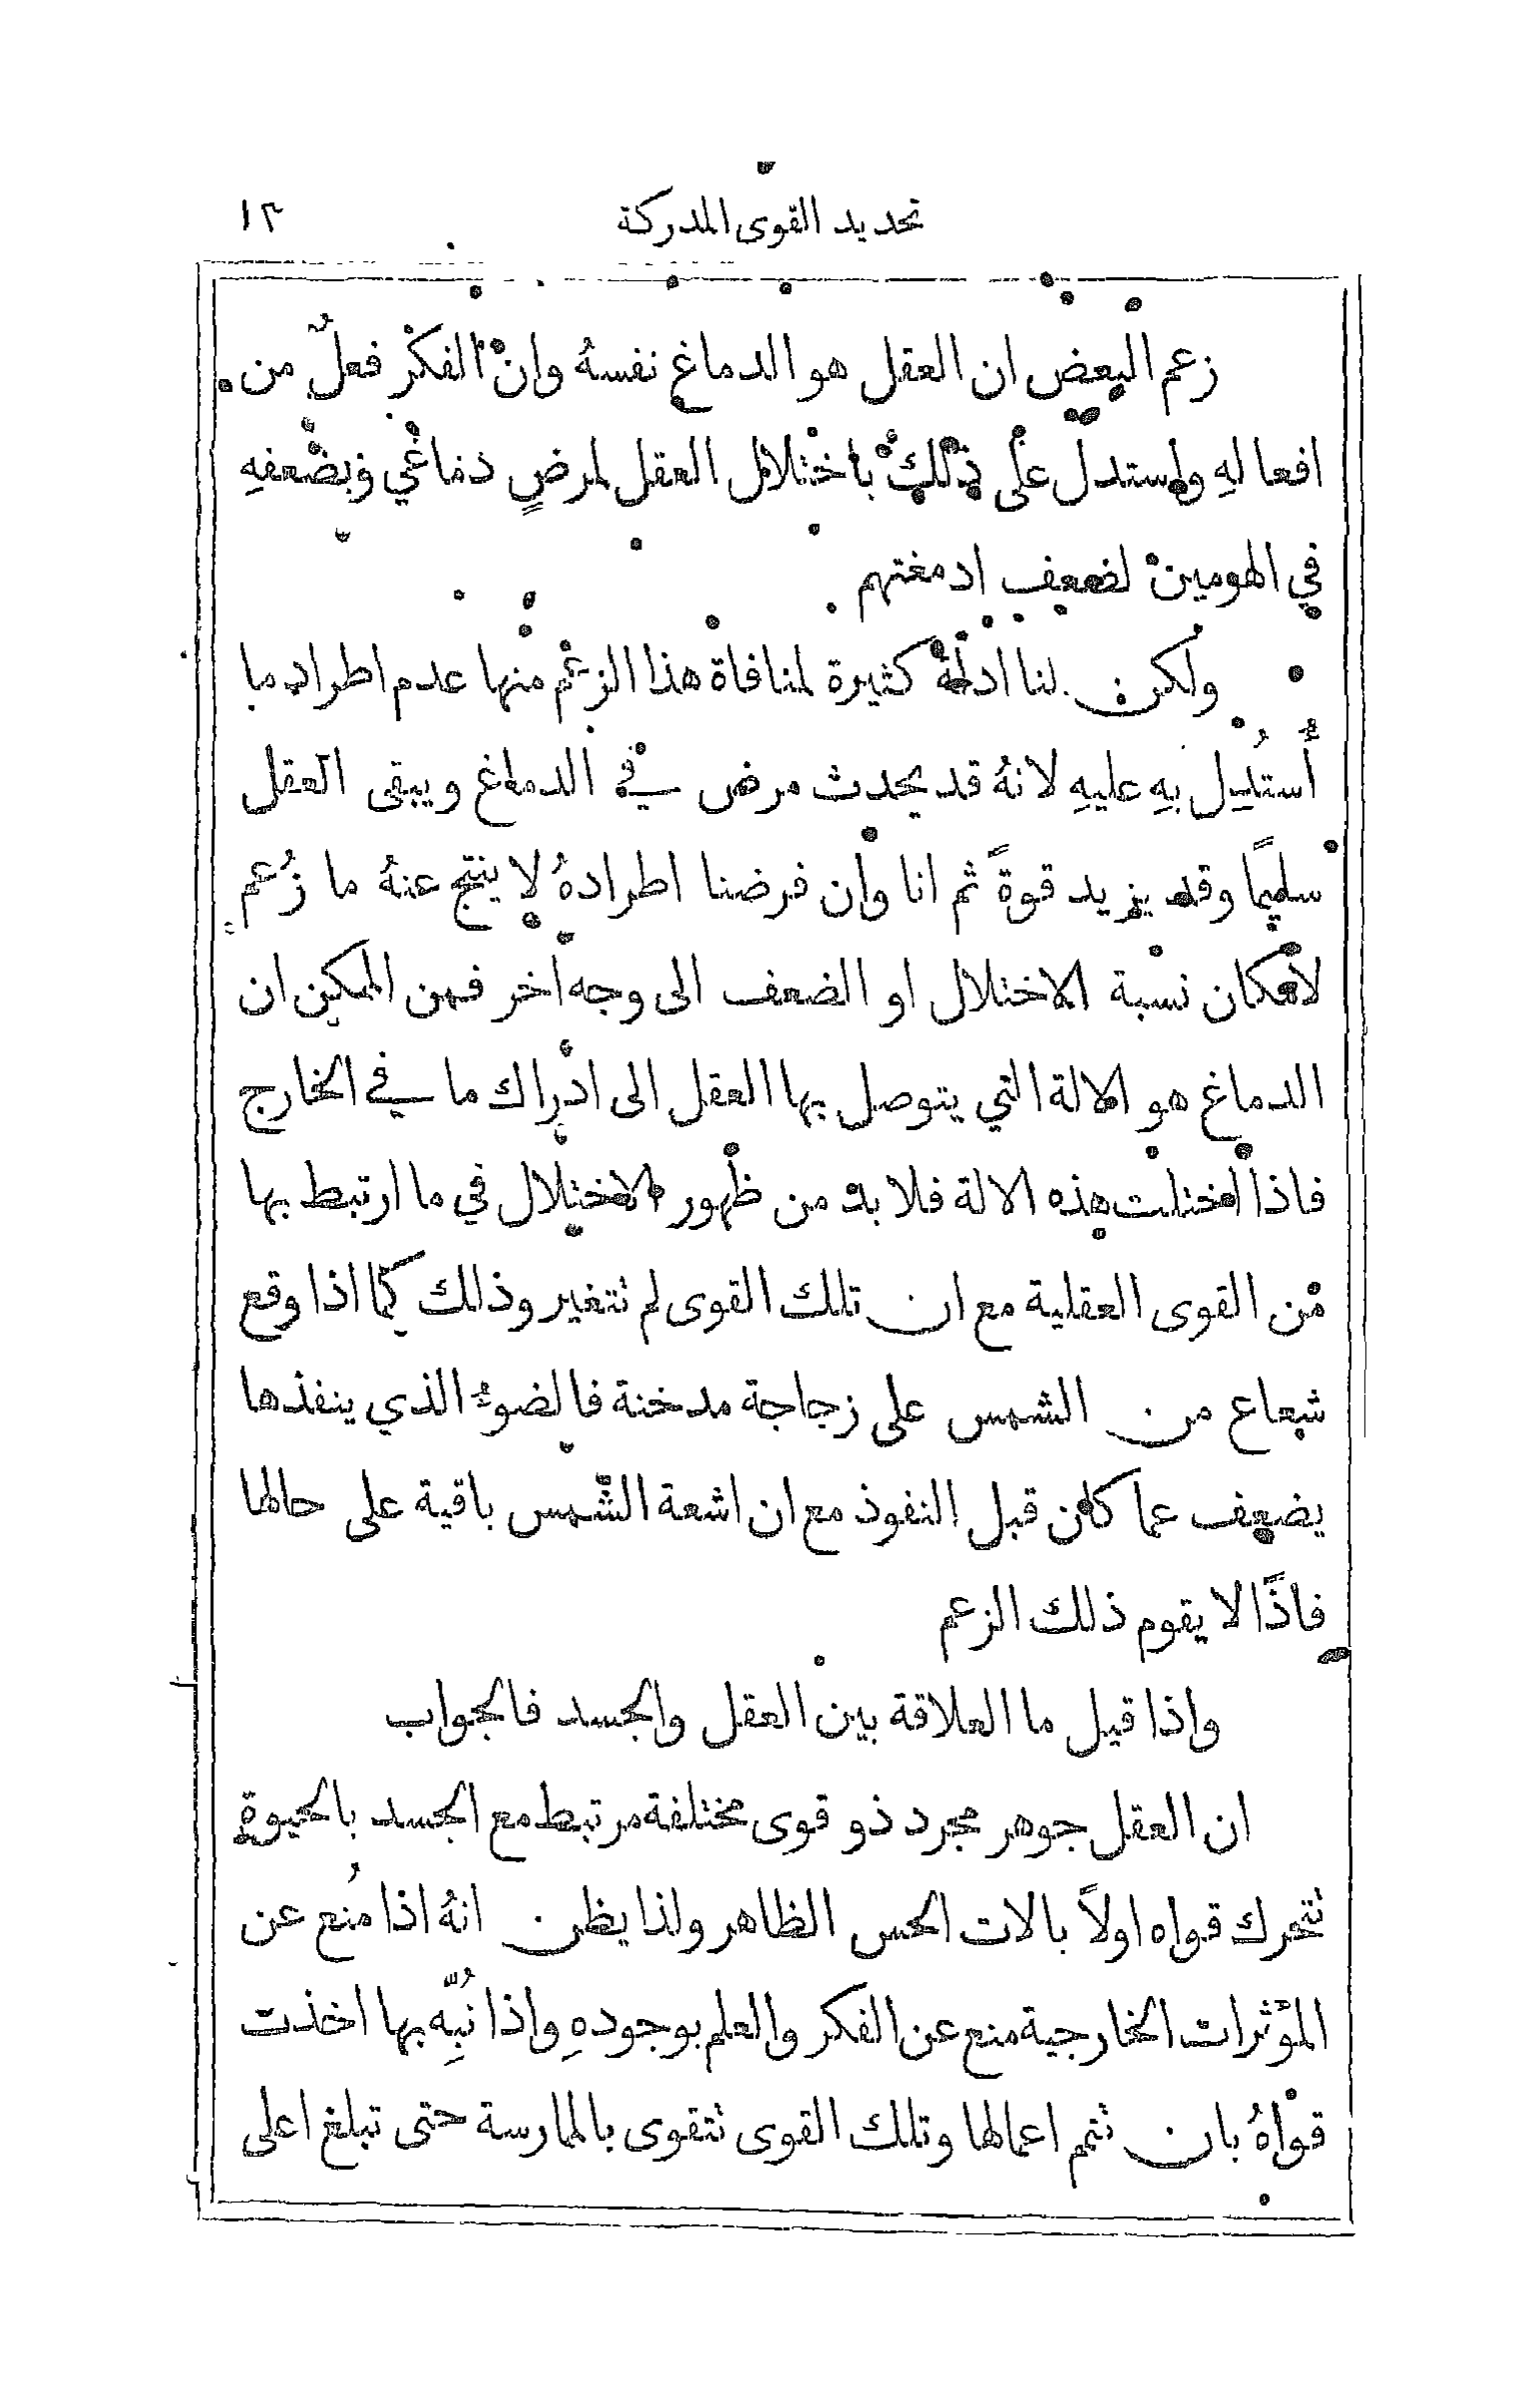 تحديد القوى المدركة ١٣
زعم البعض ان العقل هو الدماغ نفسهُ وان الفكر فعلٌ من
افعالهِ واستدل على ذلك باختلال العقل لمرضٍ دماغي وبضعفهِ
في الهرمين لضعف ادمغتهم
ولكن لنا ادلة كثيرة لمنافاة هذا الزعم منها عدم اطراد ما
أُستُدِل بهِ عليهِ لانهُ قد يحدث مرض في الدماغ ويبقى العقل
سليمًا وقد يزيد قوةً ثم انا وان فرضنا اطرادهُ لا ينتج عنهُ ما زُعم
لامكان نسبة الاختلال او الضعف الى وجه آخر فمن الممكن ان
الدماغ هو الالة التي يتوصل بها العقل الى ادراك ما في الخارج
فاذا اختلت هذه الالة فلا بد من ظهور الاختلال في ما ارتبط بها
من القوى العقلية مع ان تلك القوى لم نتغير وذلك كما اذا وقع
شعاع من الشمس على زجاجة مدخنة فالضوءُ الذي ينفذها
يضعف عما كان قبل النفوذ مع ان اشعة الشمس باقية على حالها
فاذًا لا يقوم ذلك الزعم
واذا قيل ما العلاقة بين العقل والجسد فالجواب
ان العقل جوهر مجرد ذو قوى مختلفة مرتبط مع الجسد بالحيوة
نتحرك قواه اولاً بالات الحس الظاهر ولذا يظن انهُ اذا مُنع عن
المؤثرات الخارجية منع عن الفكر والعلم بوجودهِ واذا نُبِّه بها اخذت
قواهُ بان نتم اعمالها وتلك القوى نتقوى بالممارسة حتى تبلغ اعلى